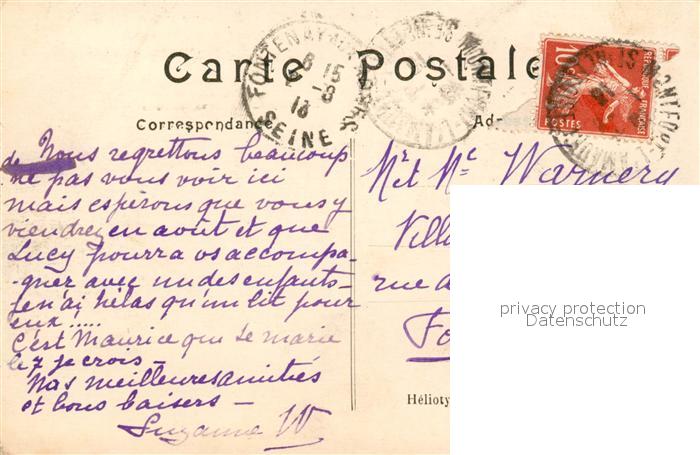 Carte Postale
FONTENAY-AUX-
8 15
2 -8
13
SEINE
10
REPUBLIQUE FRANÇAISE
POSTES
Correspondance
de Nous regrettons beaucoup
ne pas vous voir ici
mais espérons que vous y
viendrez en août et que
Lucy pourra vs accompa-
-gner avec un des enfants-
je n'ai hélas qu'un lit pour
eux.....
C'est Maurice qui se marie
le 7 je crois -
Nos meilleures amitiés
et bons baisers -
Suzanne W
Mr et Me Warnery
Villa
rue d
Fo
Hélioty
privacy protection
Datenschutz